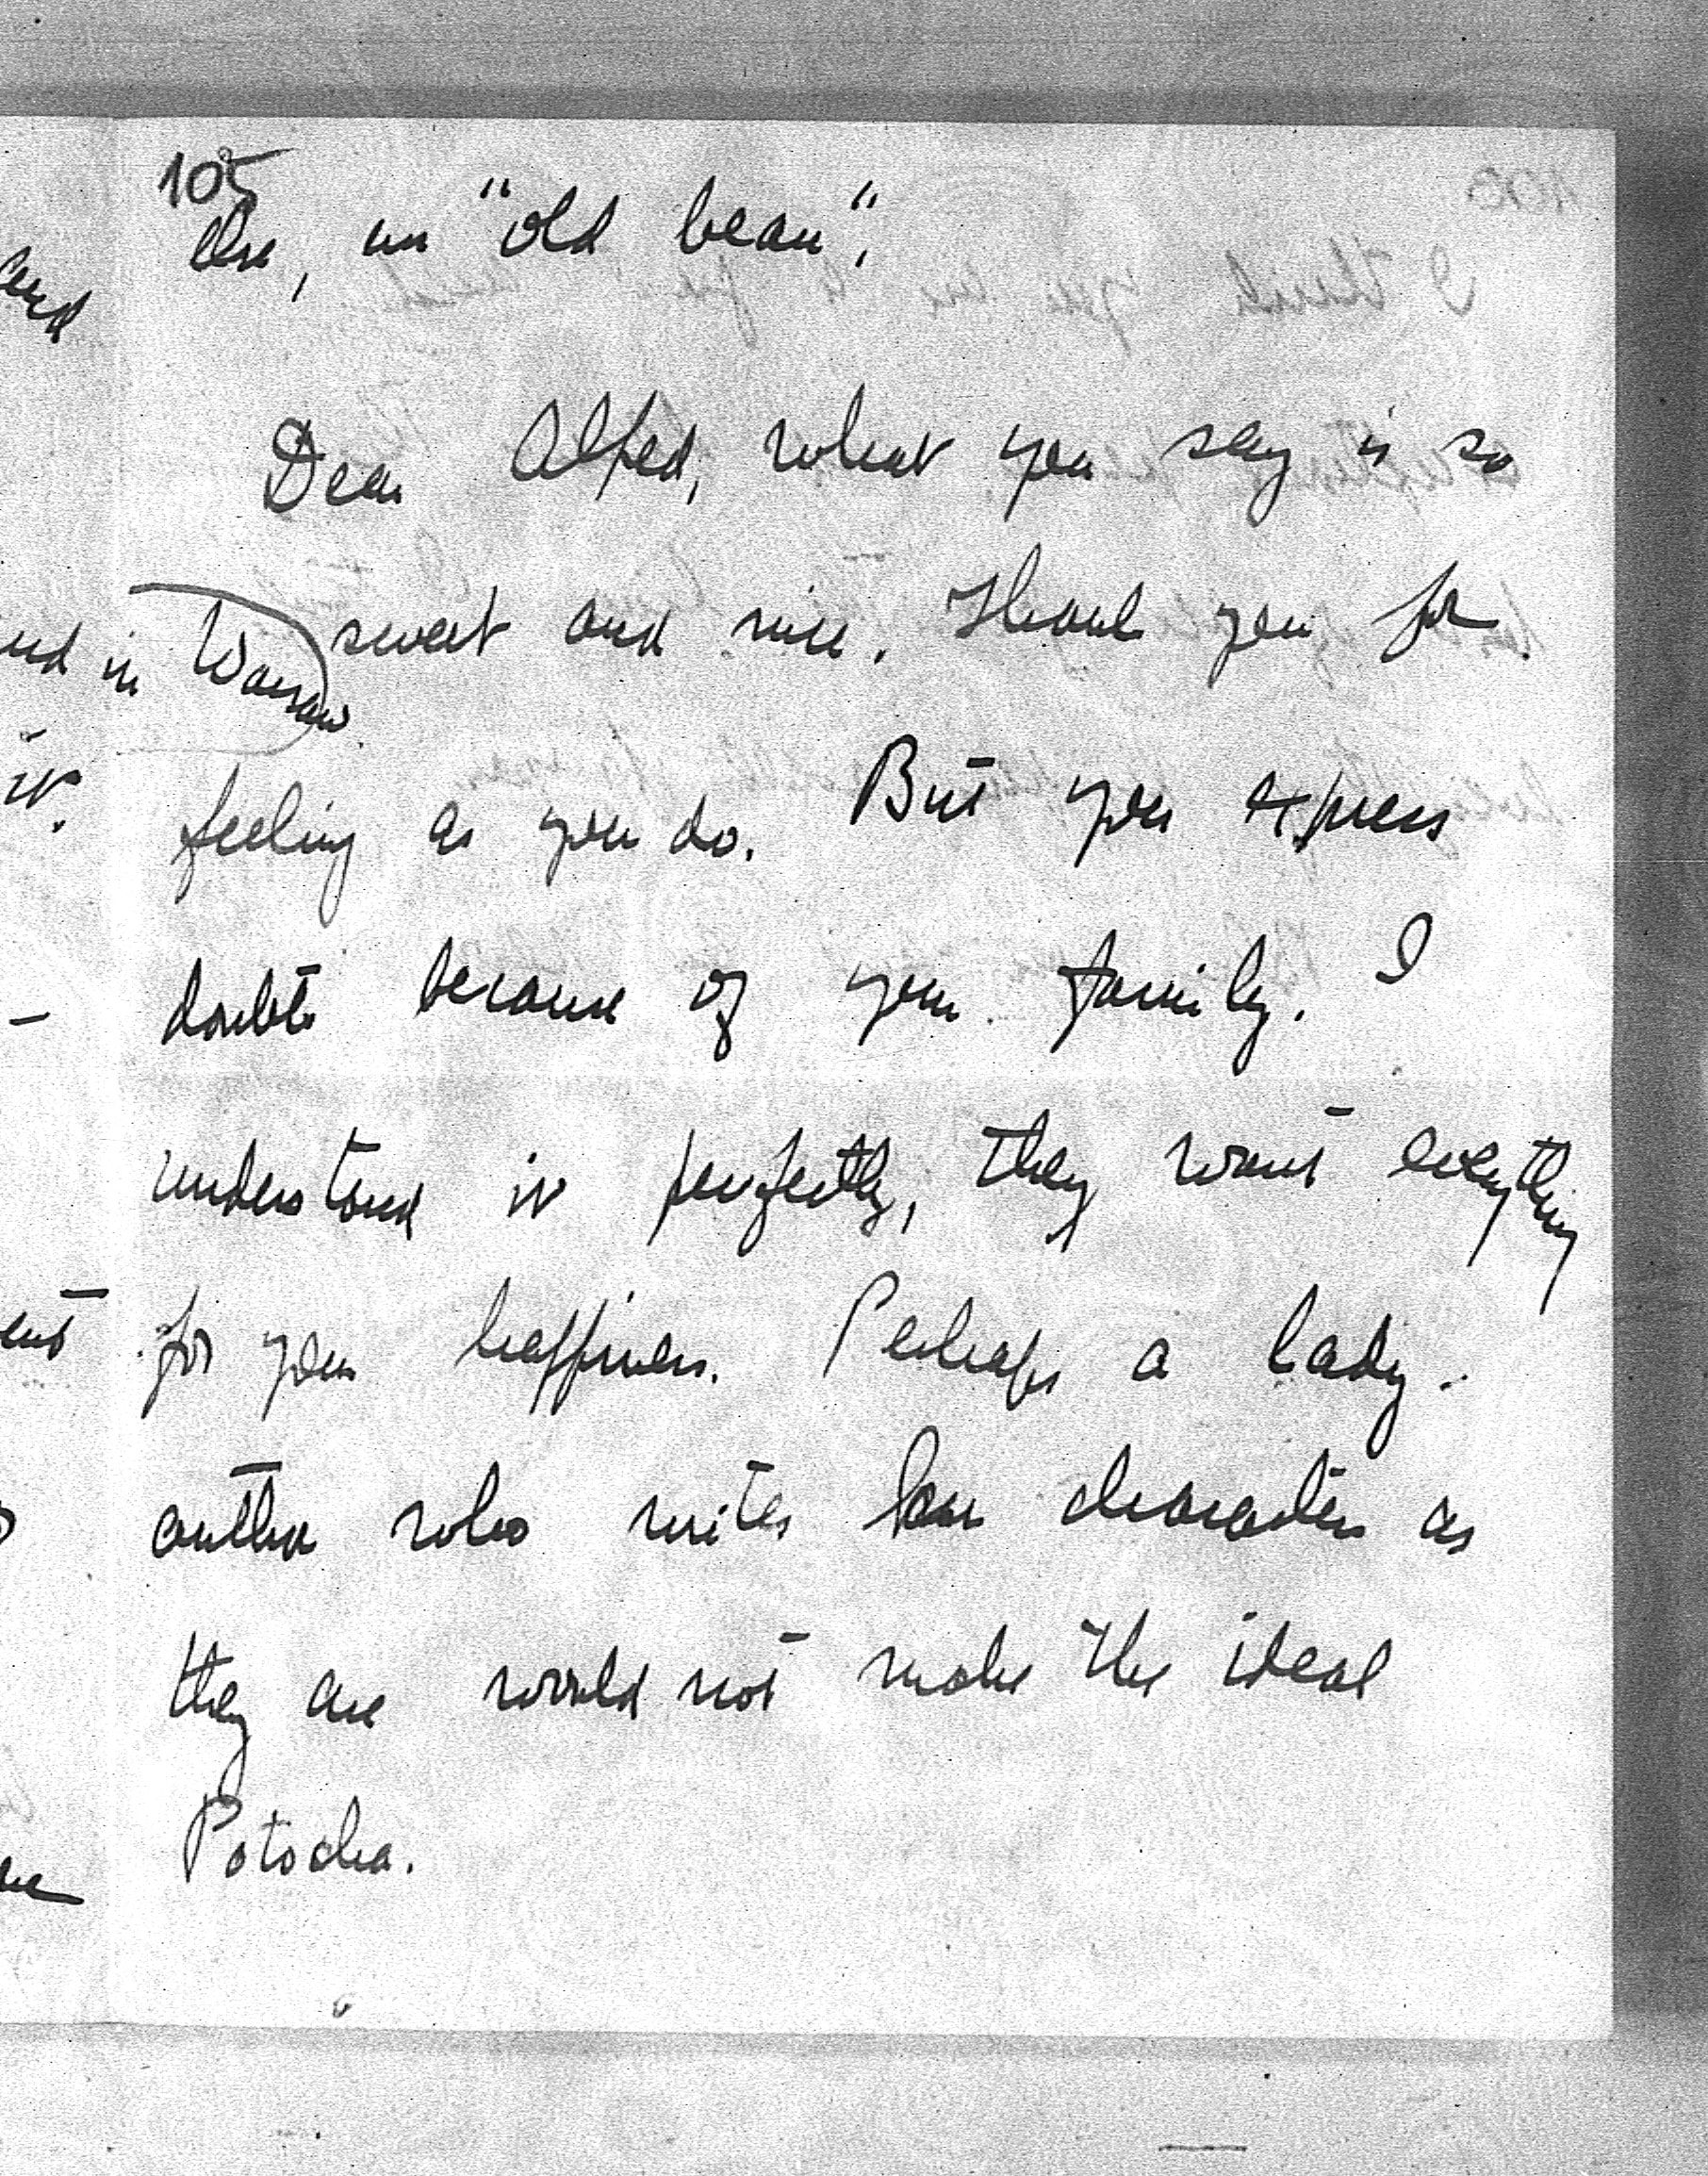 105
else, an "old bean".
Dear Alfred, what you say is so
sweet and nice. Thank you for
in Warsaw
feeling as you do. But you express
it.
doubts because of your family. I
understand it perfectly, they want everything
for your happiness. Perhaps a lady-
author who writes characters as
they are would not make the ideal
Potocka.